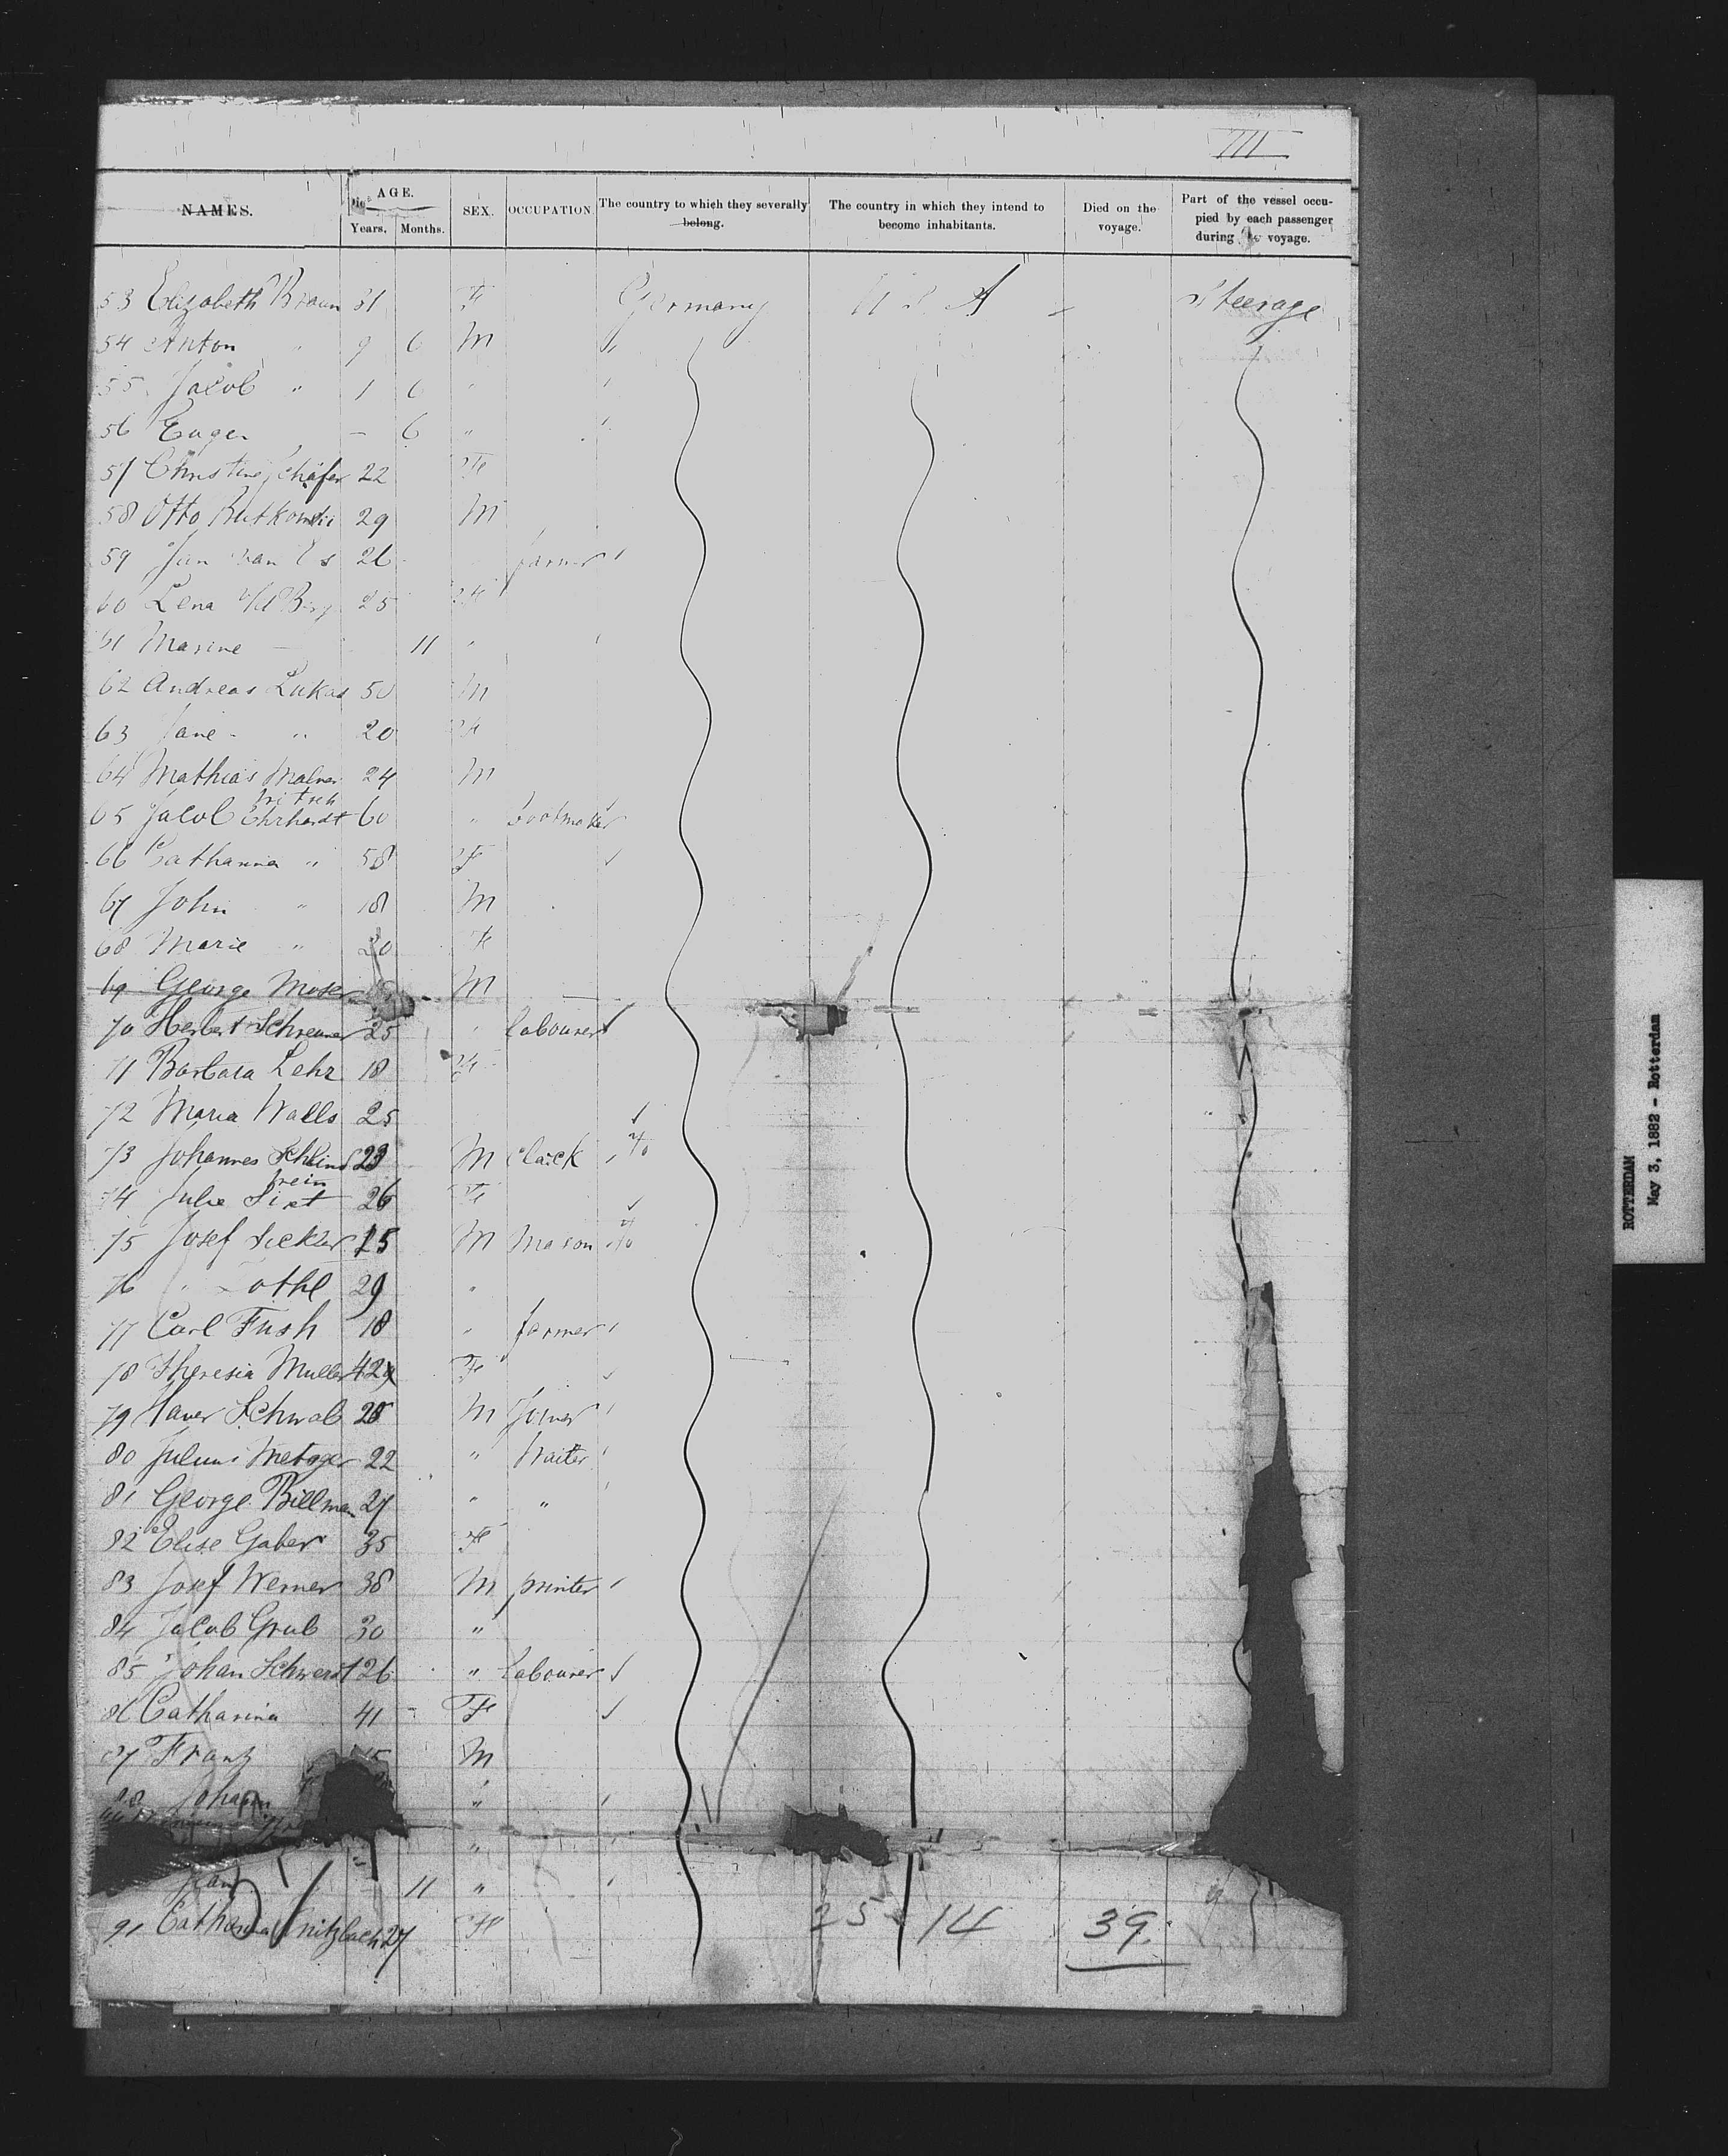 III
NAMES. AGE. Years. Months. SEX. OCCUPATION. The country to which they severally belong. The country in which they intend to become inhabitants. Died on the voyage. Part of the vessel occupied by each passenger during voyage.
53 Elizabeth Braun 31 F Germany U S A Steerage
54 Anton " 9 6 M "
55 Jacob " 1 6 "
56 Eugen — 6 "
57 Christine Schäfer 22 F
58 Otto Rutkowski 29 M
59 Jan van Es 26 farmer
60 Lena v/d Berg 25 F
61 Marine — 11 "
62 Andreas Lukas 50 M
63 Jane " 20 F
64 Mathias 24 M
65 Jacob Ehrhardt 60 " bootmaker
66 Catharina " 58 F
67 John " 18 M
68 Marie " 20 F
69 George Moser M
70 Herbert Schreiner 25 " labourer
71 Barbara Lehr 18 F
72 Maria Walls 25
73 Johannes 23 M Clack
74 Julie Sixt 26 F
75 Josef Sickler 25 M Mason
76 " 29 "
77 Carl Fush 18 " farmer
78 Theresia Muller 42 F
79 Xaver Schwab 28 M Joiner
80 Julius Metzger 22 " Waiter
81 George Billman 27 " "
82 Elise Gaber 35 F
83 Josef Werner 38 M printer
84 Jacob Grub 30 "
85 Johan Schwerdt 26 " Labourer
86 Catharina 41 F
87 Frantz M
88 Johann "
"
Jean 11 "
91 Catharina 27 F 25 14 39.
ROTTERDAM
May 3, 1882 - Rotterdam